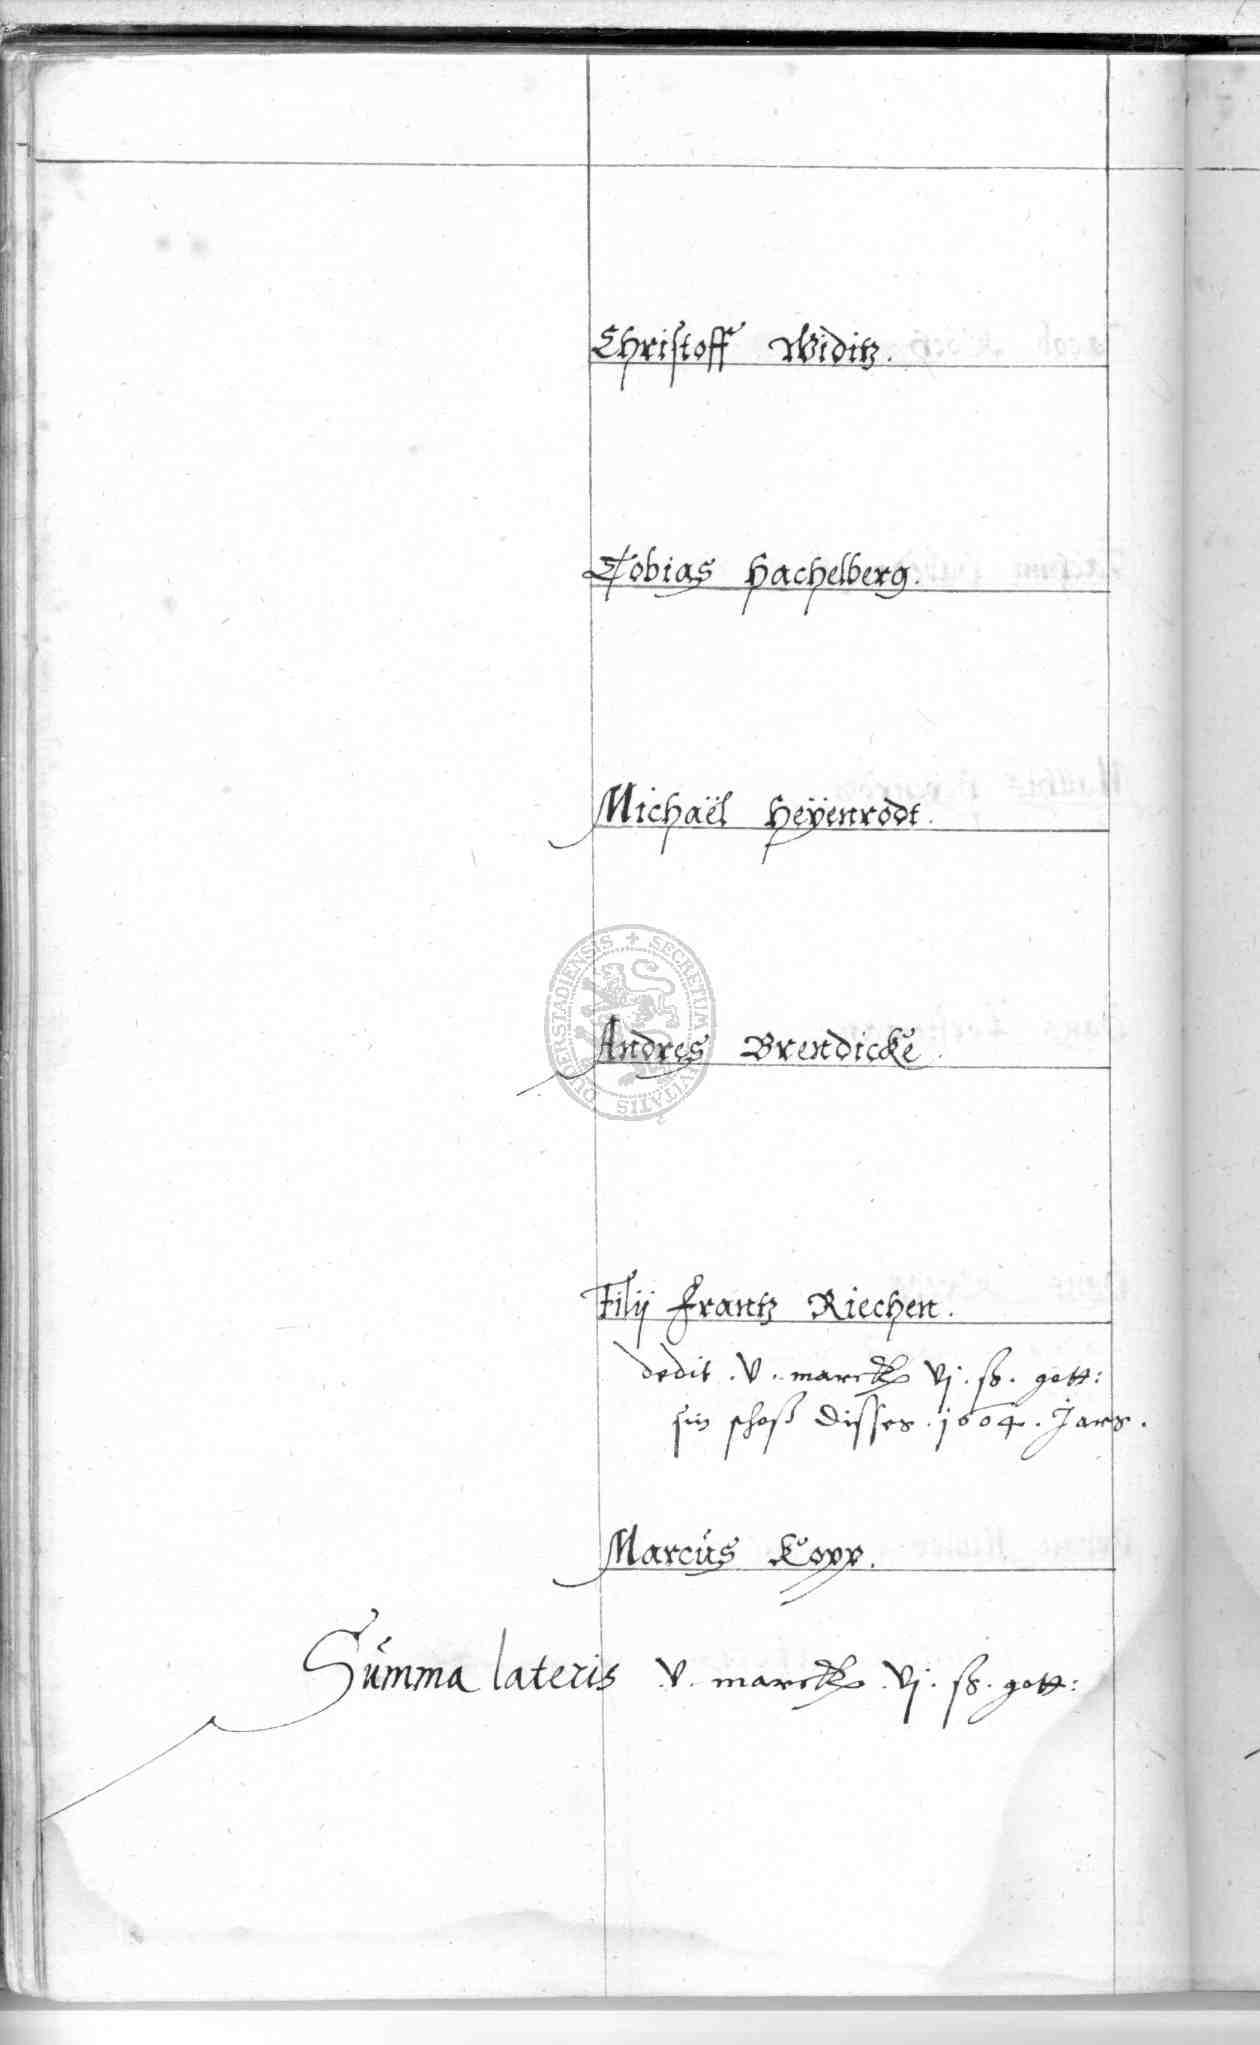 Christoff Widitz.
Tobias Hachelberg.
Michaël Heÿenrodt.
SECRETUM CIVITATIS DUDERSTADIENSIS
Andres Brendicke.
Filij Frantz Riechen.
dedit . V . marck vj . ß . gott:
sin schoß disses . 1604 . Jars.
Marcus Kopp.
Summa lateris V . marck . vj . ß . gott: